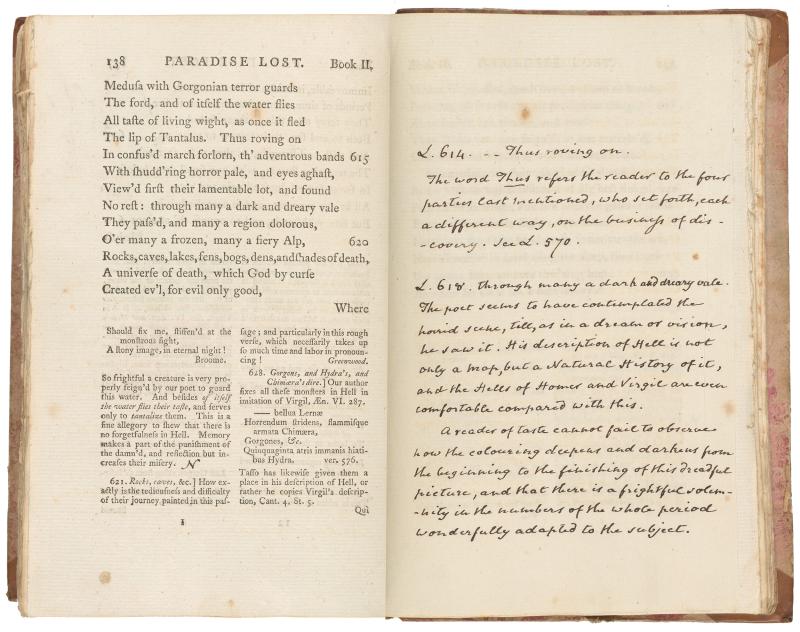 138 PARADISE LOST. Book II.
Meduſa with Gorgonian terror guards
The ford, and of itſelf the water flies
All taſte of living wight, as once it fled
The lip of Tantalus. Thus roving on
In confus'd march forlorn, th' adventrous bands 615
With ſhudd'ring horror pale, and eyes aghaſt,
View'd firſt their lamentable lot, and found
No reſt: through many a dark and dreary vale
They paſs'd, and many a region dolorous,
O'er many a frozen, many a fiery Alp, 620
Rocks, caves, lakes, fens, bogs, dens, and ſhades of death,
A univerſe of death, which God by curſe
Created ev'l, for evil only good,
Where
Should fix me, ſtiffen'd at the
monſtrous ſight,
A ſtony image, in eternal night!
Broome.
So frightful a creature is very pro-
perly feign'd by our poet to guard
this water. And beſides of itſelf
the water flies their taſte, and ſerves
only to tantalize them. This is a
fine allegory to ſhew that there is
no forgetfulneſs in Hell. Memory
makes a part of the puniſhment of
the damn'd, and reflection but in-
creaſes their miſery. N
621. Rocks, caves, &c.] How ex-
actly is the tediouſneſs and difficulty
of their journey painted in this paſ-
I
ſage; and particularly in this rough
verſe, which neceſſarily takes up
ſo much time and labor in pronoun-
cing! Greenwood.
628. Gorgons, and Hydra's, and
Chimæra's dire.] Our author
fixes all theſe monſters in Hell in
imitation of Virgil, Æn. VI. 287.
—— bellua Lernæ
Horrendum ſtridens, flammiſque
armata Chimæra,
Gorgones, &c.
Quinquaginta atris immanis hiati-
bus Hydra. ver. 576.
Taſſo has likewiſe given them a
place in his deſcription of Hell, or
rather he copies Virgil's deſcrip-
tion, Cant. 4. St. 5.
Qui
L. 614. -- Thus roving on.
The word Thus refers the reader to the four
parties last mentioned, who set forth, each
a different way, on the business of dis-
-covery. See L. 570.
L. 618. through many a dark and dreary vale.
The poet seems to have contemplated the
horrid scene, till, as in a dream or vision,
he saw it. His description of Hell is not
only a map, but a Natural History of it,
and the Hells of Homer and Virgil are even
comfortable compared with this.
A reader of taste cannot fail to observe
how the colouring deepens and darkens from
the beginning to the finishing of this dreadful
picture, and that there is a frightful solem-
-nity in the numbers of the whole period
wonderfully adapted to the subject.